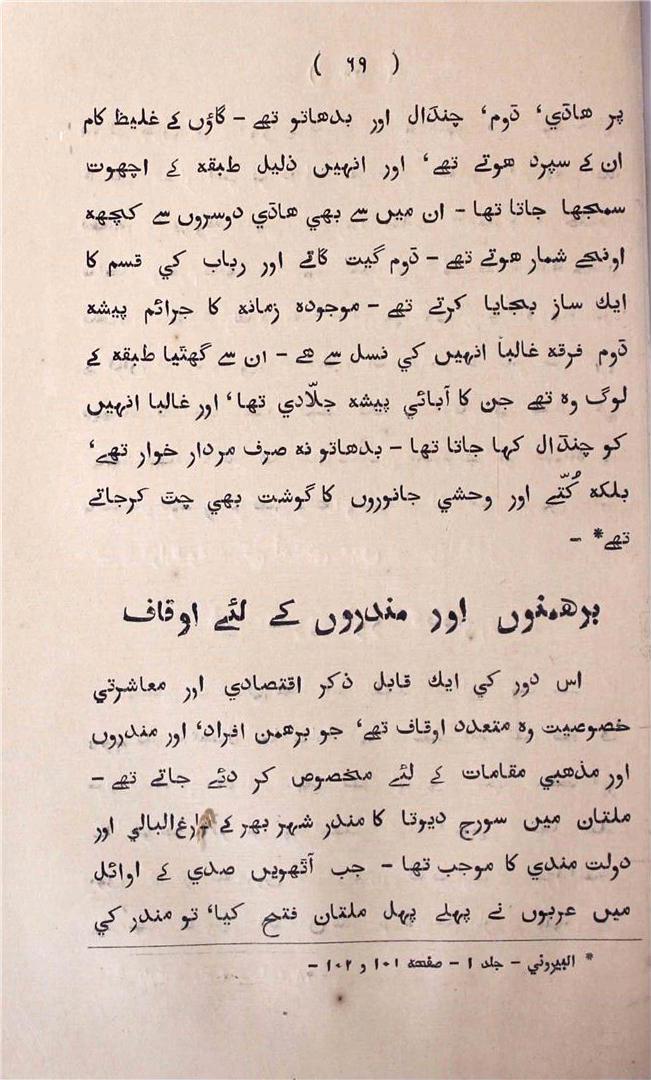 ( ۶۹ )
پر ھاڈي‘ ڈوم‘ چنڈال اور بدھاتو تھے - گاؤں کے غلیظ کام
ان کے سپرد ھوتے تھے‘ اور انھیں ذلیل طبقہ کے اچھوت
سمجھا جاتا تھا - ان میں سے بھي ھاڈي دوسروں سے کچھہ
اونچے شمار ھوتے تھے - ڈوم گیت گاتے اور رباب کي قسم کا
ایك ساز بجایا کرتے تھے - موجودہ زمانہ کا جرائم پیشہ
ڈوم فرقہ غالباً انھیں کي نسل سے ھے - ان سے گھٹیا طبقہ کے
لوگ وہ تھے جن کا آبائي پیشہ جلّادي تھا‘ اور غالبا انھیں
کو چنڈال کہا جاتا تھا - بدھاتو نہ صرف مردار خوار تھے‘
بلکہ کُتّے اور وحشي جانوروں کا گوشت بھي چٹ کرجاتے
تھے* -
برھمنوں اور مندروں کے لئے اوقاف
اس دور کي ایك قابل ذکر اقتصادي اور معاشرتي
خصوصیت وہ متعدد اوقاف تھے‘ جو برھمن افراد‘ اور مندروں
اور مذھبي مقامات کے لئے مخصوص کر دئے جاتے تھے -
ملتان میں سورج دیوتا کا مندر شہر بھر کے فارغ‌البالي اور
دولت مندي کا موجب تھا - جب آٹھویں صدي کے اوائل
میں عربوں نے پہلے پہل ملتان فتح کیا‘ تو مندر کي
* البیروني - جلد ۱ - صفحہ ۱۰۱ و ۱۰۲ -